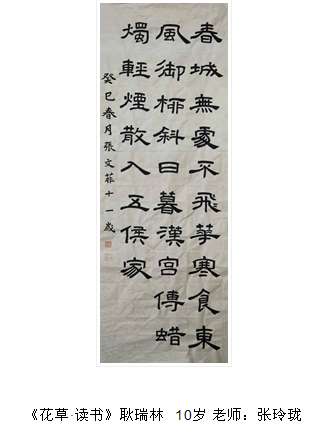 春城無處不飛華寒食東
風御柳斜日暮漢宮傳蜡
燭輕煙散入五侯家
癸巳春月張文菲十一歲
《花草·读书》耿瑞林 10岁 老师：张玲珑